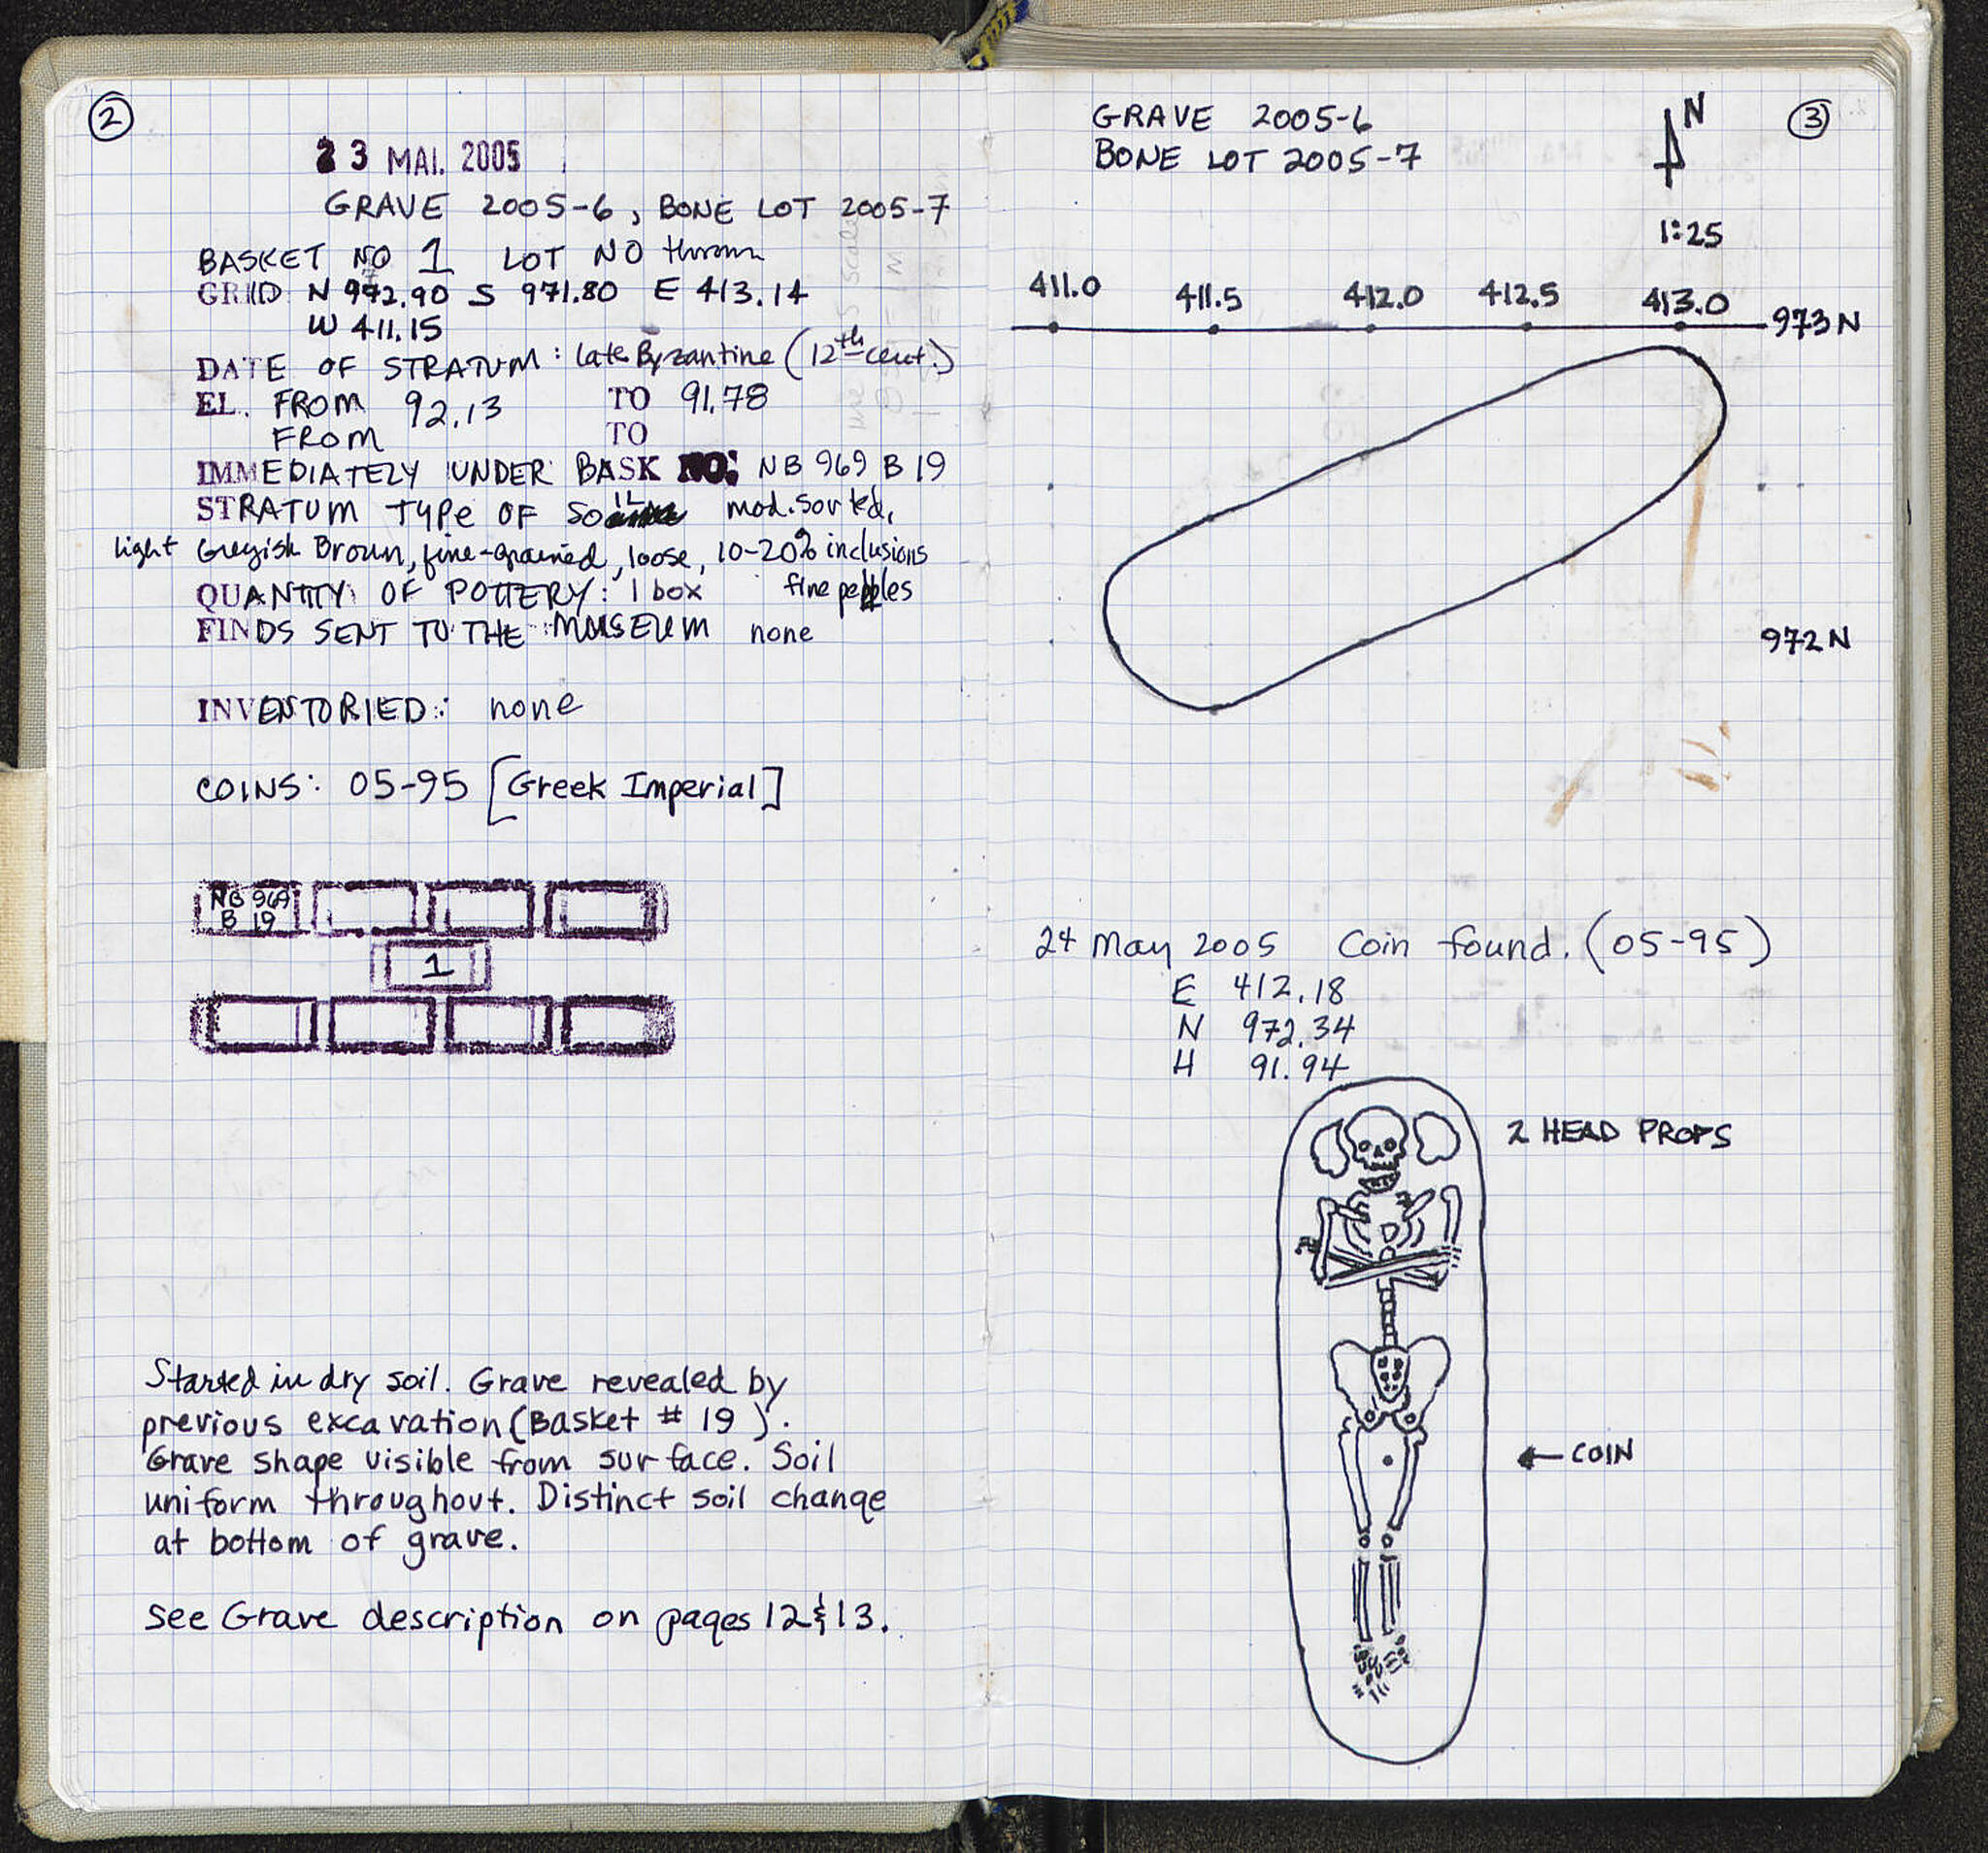 2
23 MAI. 2005
GRAVE 2005-6, BONE LOT 2005-7
BASKET NO 1 LOT NO thrown
GRID N 972.90 S 971.80 E 413.14
W 411.15
DATE OF STRATUM: late Byzantine (12th cent.)
EL. FROM 92.13 TO 91.78
FROM TO
IMMEDIATELY UNDER BASK NO: NB 969 B 19
STRATUM TYPE OF SOIL mod. sorted,
light Greyish Brown, fine-grained, loose, 10-20% inclusions
QUANTITY OF POTTERY: 1 box fine pebbles
FINDS SENT TO THE MUSEUM none
INVENTORIED: none
COINS: 05-95 [Greek Imperial]
NB 969
B 19
1
Started in dry soil. Grave revealed by
previous excavation (Basket # 19).
Grave shape visible from surface. Soil
uniform throughout. Distinct soil change
at bottom of grave.
see Grave description on pages 12 & 13.
GRAVE 2005-6
BONE LOT 2005-7
N
3
1:25
411.0 411.5 412.0 412.5 413.0
973 N
972 N
24 May 2005 Coin found. (05-95)
E 412.18
N 972.34
H 91.94
2 HEAD PROPS
← COIN